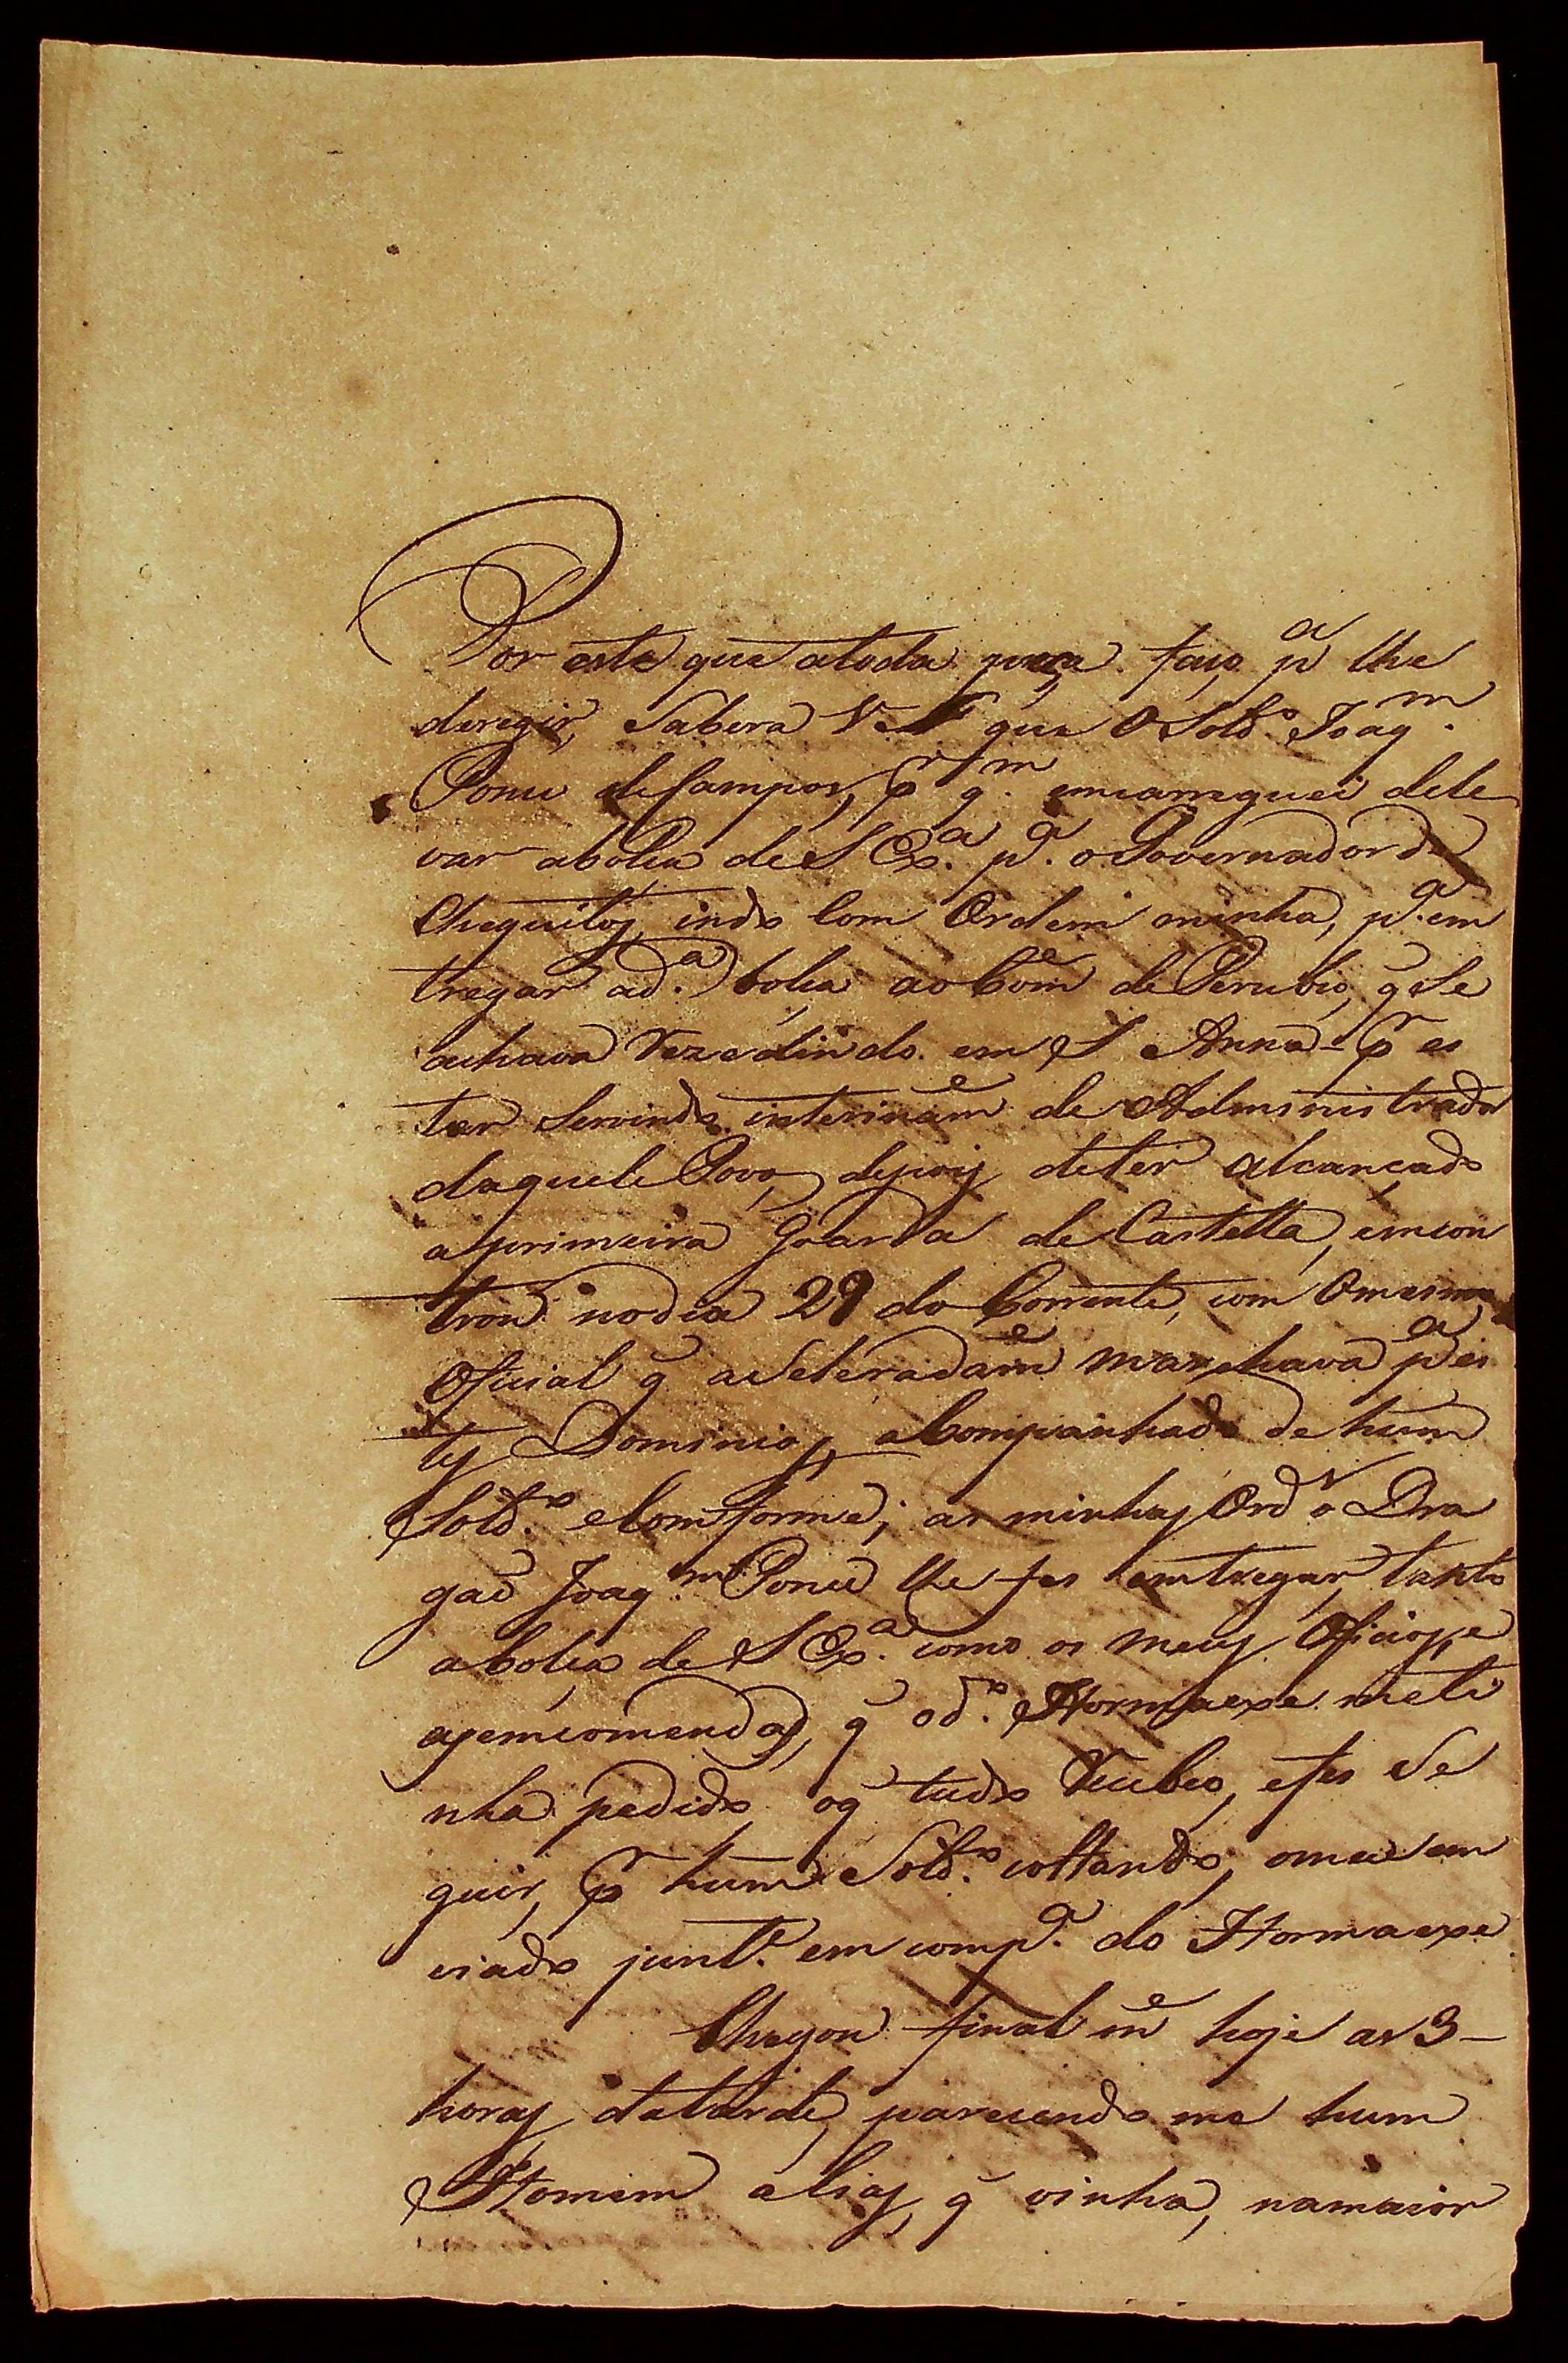 Por este que atoda preça faço pª lhe
deregir, Sabera VS que O Soldº Joaqm.
Ponce deCampos, pr qm. emcarreguei dele
var abolça de S Exª. pª. o Governador de
Chequitos, indo Com Ordem minha, pª. em
tregar adª. bolça aoCome de Perubio, q̃ Se
achava Rezedindo em S Anna - pr es
tar Servindo interiname de Administrador
daquele Povo, depois deter alcançado
aprimeira Goarda de Castella, emcon
trou nodia 29 do Corrente, com Omesmo
Oficial q̃ aSeleradame marchava pª es
tes Dominios, aCompanhado de hum
Soldº. eComforme; as minhas Ordr o Dra
gaõ Joaqm. Ponce lhe fes emtregar, tanto
abolça de S Exª. como os meus Oficios, e
asemcomendas, q̃ odº. Hormaexe meti
nha pedido, oq̃ tudo Recebeo, efes Se
guir, pr hum Soldº. voltando, omeu em
viado junte. em compª. do Hormaexe
Chegou final me hoje as 3 -
horas datarde, parecendo me hum
Homem alias, q̃ vinha, namaior